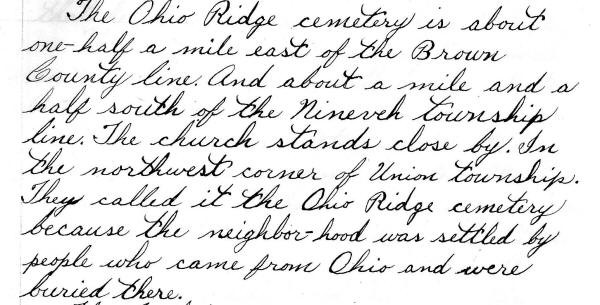 The Ohio Ridge cemetery is about
one-half a mile east of the Brown
County line. And about a mile and a
half south of the Nineveh township
line. The church stands close by. In
the northwest corner of Union township.
They called it the Ohio Ridge cemetery
because the neighbor-hood was settled by
people who came from Ohio and were
buried there.